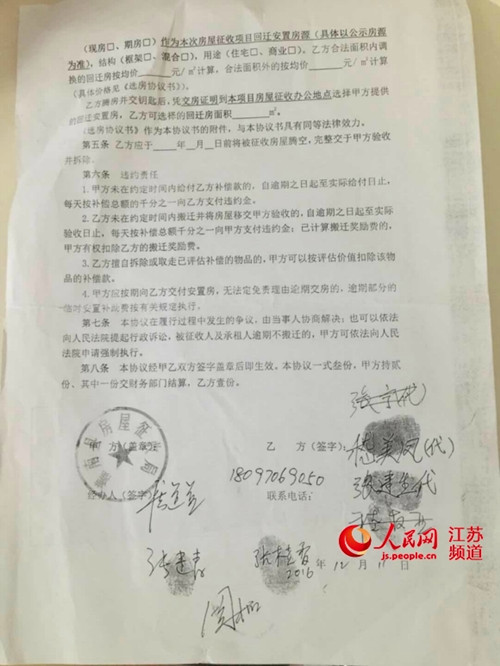 （现房□、期房□）作为本次房屋征收项目回迁安置房源（具体以公示房源
为准），结构（框架□、混合□），用途（住宅□、商业□）。乙方合法面积内调
换的回迁房按均价____元/㎡计算，合法面积外的按均价____元/㎡计算，
（具体价格见《选房协议书》）。
乙方腾房并交钥匙后，凭交房证明到本项目房屋征收办公地点选择甲方提供
的回迁安置房，乙方可选择的回迁房面积____㎡。
《选房协议书》作为本协议书的附件，与本协议书具有同等法律效力。
第五条 乙方应于____年__月__日前将被征收房屋腾空，完整交于甲方验收
并拆除。
第六条 违约责任
1.甲方未在约定时间内给付乙方补偿款的，自逾期之日起至实际给付日止，
每天按补偿总额的千分之一向乙方支付违约金。
2.乙方未在约定时间内搬迁并将房屋移交甲方验收的，自逾期之日起至实际
验收日止，每天按补偿总额千分之一向甲方支付违约金；已计算搬迁奖励费的，
甲方有权扣除乙方的搬迁奖励费。
3.乙方擅自拆除或取走已评估补偿的物品的，甲方可以按评估价值扣除该物
品的补偿款。
4.甲方应按期向乙方交付安置房，无法定免责理由逾期交房的，逾期部分的
临时安置补助费按有关规定执行。
第七条 本协议在履行过程中发生的争议，由当事人协商解决；也可以依法
向人民法院提起行政诉讼，被征收人及承租人逾期不搬迁的，甲方可依法向人民
法院申请强制执行。
第八条 本协议经甲乙双方签字盖章后即生效。本协议一式叁份，甲方持贰
份，其中一份交财务部门结算，乙方壹份。
方（盖章）
乙 方（签字）：
(代)
18097069050
经办人（签字）
联系电话：
代
2016年12月11日
人民网 江苏频道
js.people.cn